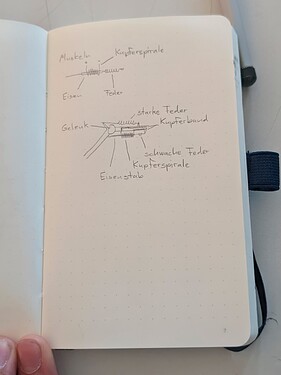 Muskel
Kupferspirale
Eisen
Feder
starke Feder
Gelenk
Kupferband
schwache Feder
Kupferspirale
Eisenstab